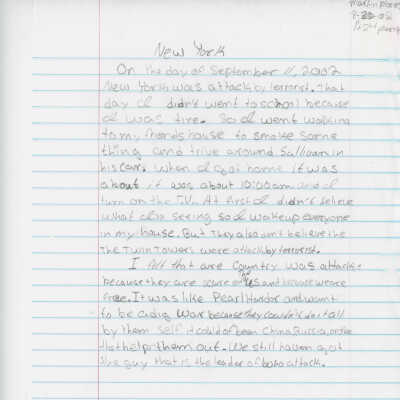 8-22-02
New York
On the day of September 11, 2002
New York was attack by terrorist. That
day I didn't went to school because
I was tire. So I went walking
to my friends house to smoke some
thing and trive around Sullivan in
his car. when I got home it was
about it was about 10:00am and I
turn on the T.V. At first I didn't believe
what I to seeing so I wakeup everyone
in my house. But They also don't believe the
The Twin Towers were attack by terrorist.
I felt that are Country was attack
because they are scare of the US and because we are
free. It was like Pearl Harbor and want
to be a big war because they couldn't do it all
by them self it could of been China Russia, or the
that help them out. We still haven got
the guy that is the leader of attack.